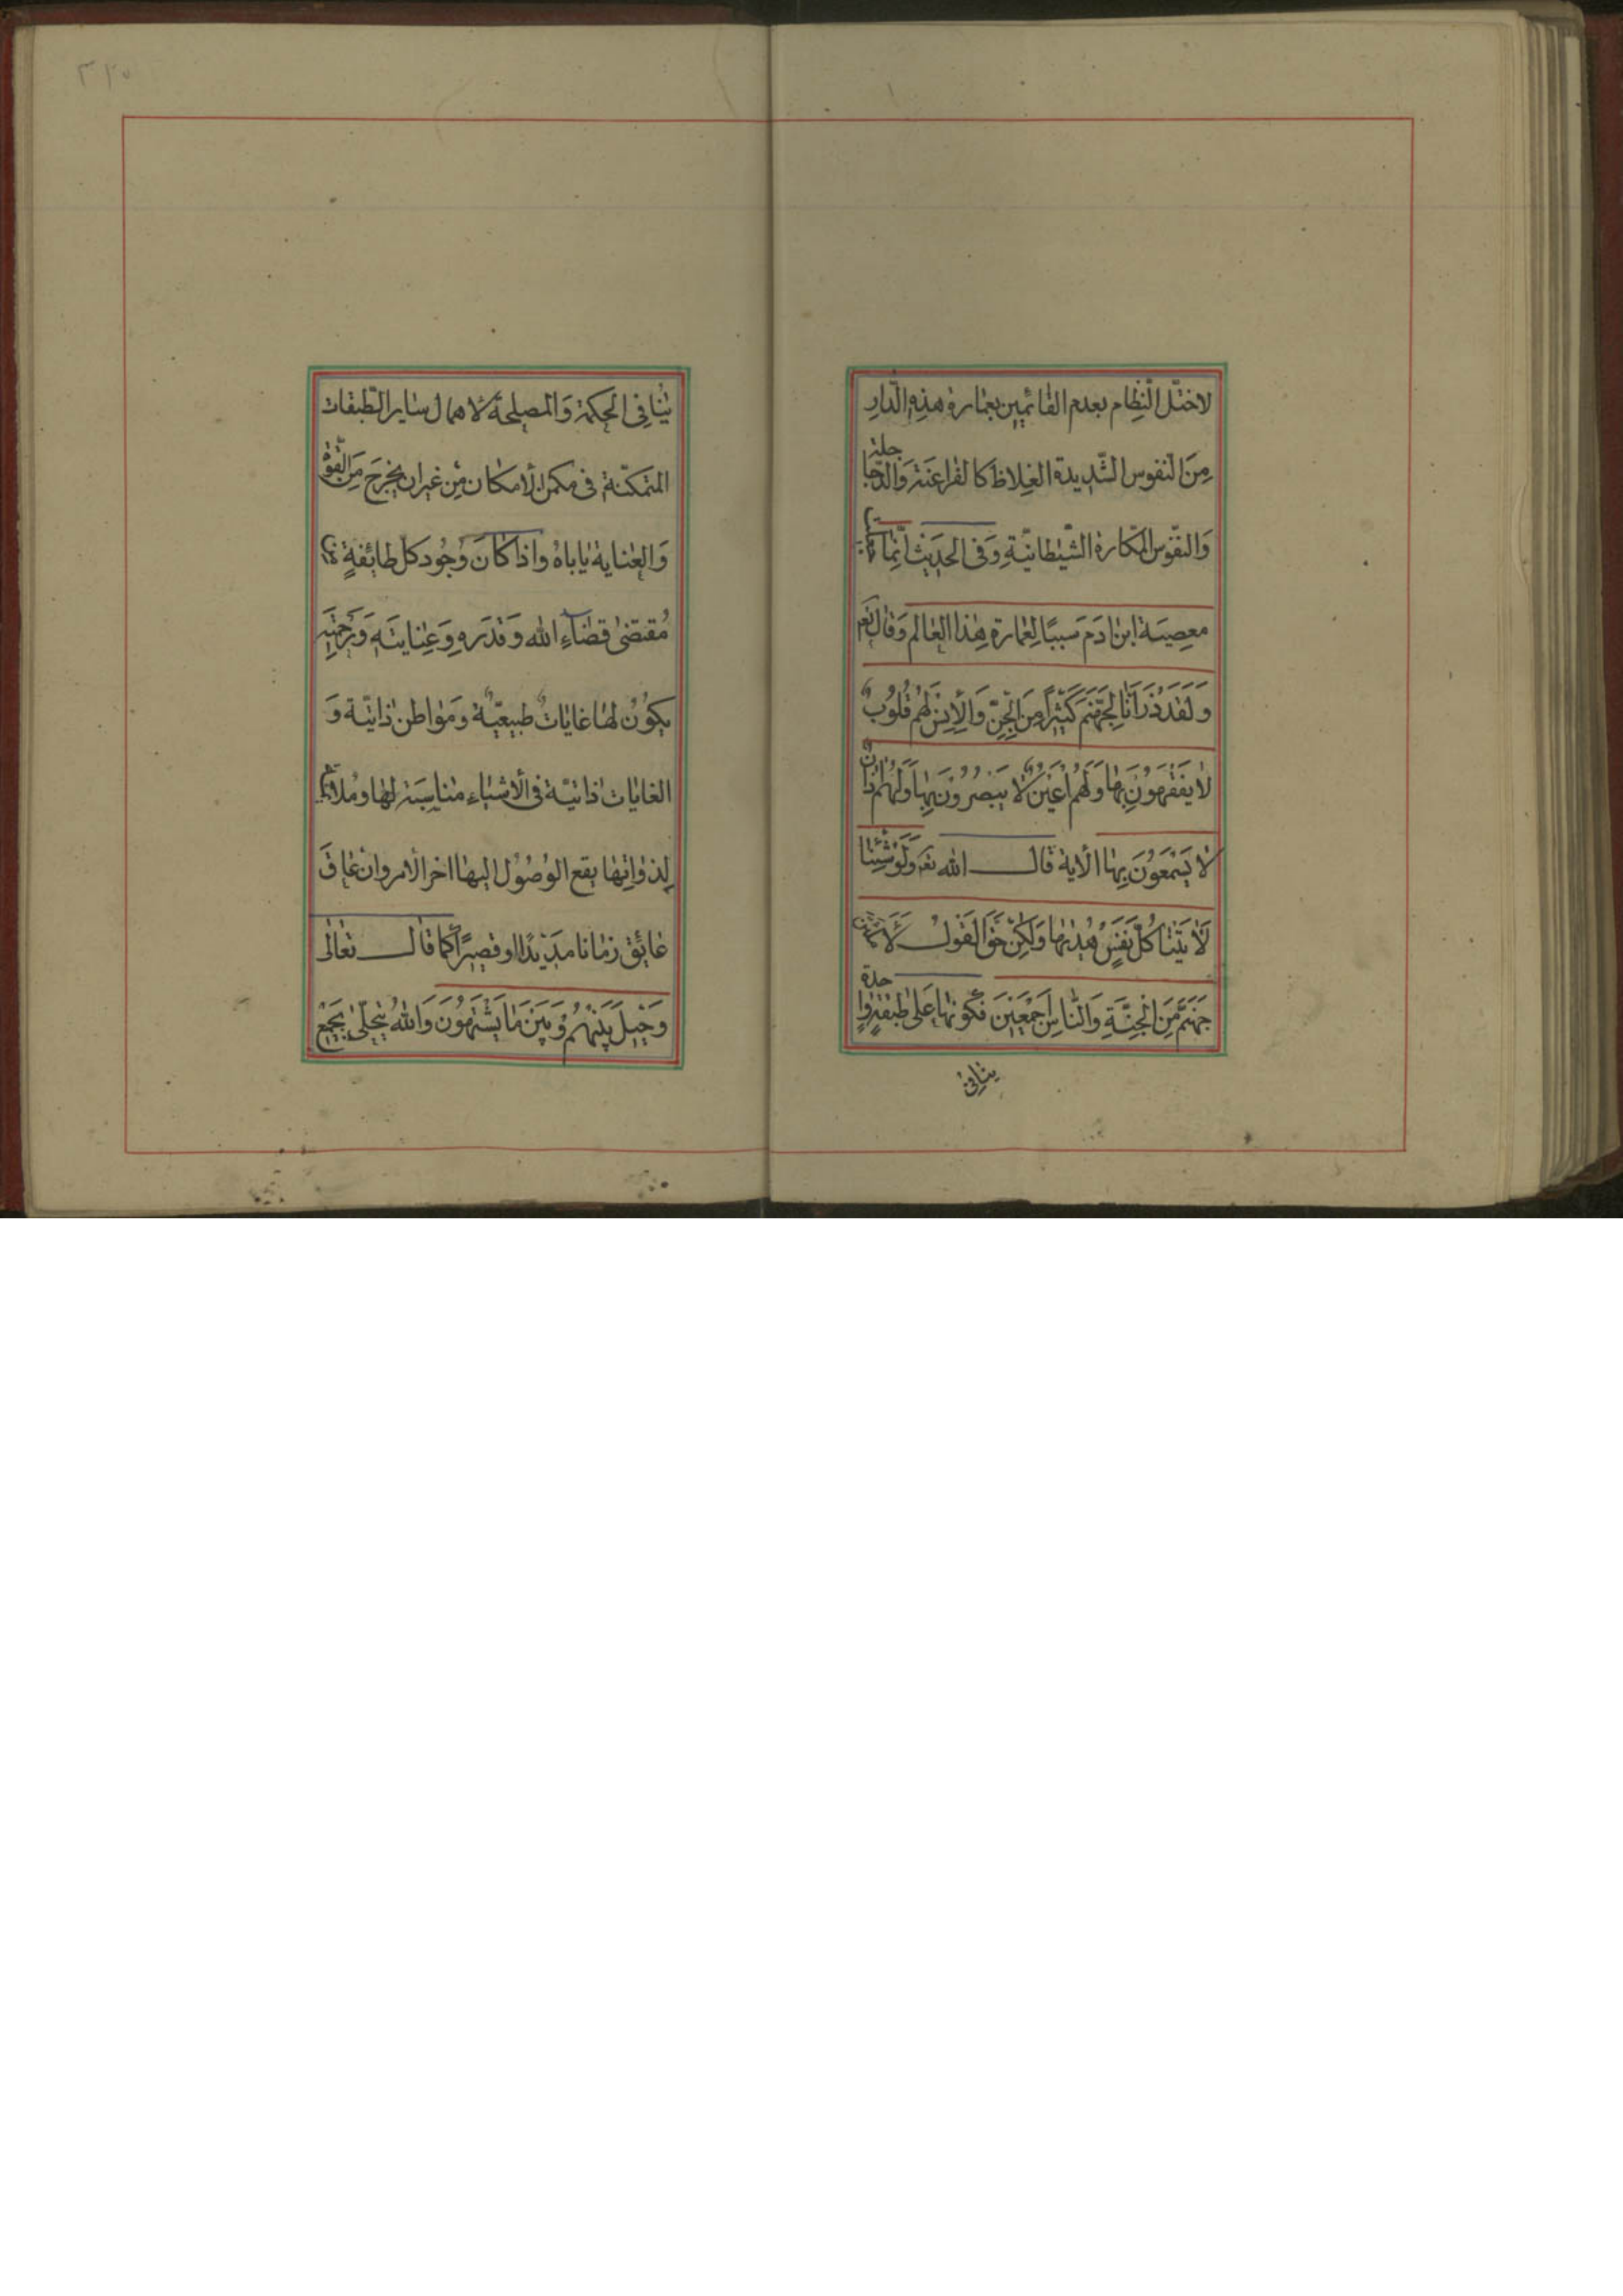 لاختلّ النّظام بعدم القائمين بعمارة هذه الدّار
مِنَ النفوس الشّديدة الغلاظ كالفراعنة وَالدّجاجلة
وَالنفوس المكّارة الشّيطانيّةِ وَفى الحديث انّما
معصية ابن ادَمَ سببًا لعمارة هٰذا العالم وَقال تع
وَلَقَدْ ذَرَأنَا لِجَهَنَّمَ كَثيرًا مِنَ الجِنّ وَالْاِنسِ لَهُمْ قُلُوبٌ
لا يَفْقَهُونَ بِهَا وَلَهُمْ اَعْيُنٌ لا يُبْصِرُونَ بِهَا وَلَهُمْ اٰذَانٌ
لا يَسْمَعُونَ بِهَا الآية قال الله تع وَلَوْ شِئْنا
لَاٰتَيْنا كُلَّ نَفْسٍ هُدٰيهَا وَلٰكِنْ حَقَّ القَولُ لَاَمْلَئَنَّ
جَهَنَّمَ مِنَ الْجِنَّةِ وَالنّاسِ اَجْمَعينَ فكونها عَلى طبقة واحدة
ينافى
٣٢٥
ينافى الحكمة وَالمصلحة لاهمال ساير الطّبقات
المتمكّنة فى مكمن الامكان مِن غير ان يخرجَ مِنَ القوّة
وَالعناية ياباهُ واذا كانَ وُجُود كلّ طائفةٍ
مُقتضى قضاءِ الله وَقدره وَعنايته وَرحمته
يكوُن لها غاياتٌ طبيعيّةٌ وَمَواطن ذاتيّة وَ
الغايات ذاتيّة فى الأشياء مناسبة لها وملائمة
لِذواتها يقع الوُصُول اليها اخر الامر وان عاقَ
عائق زمانا مديدًا او قصيرًا كما قال تعالى
وَحيلَ بَيْنَهُمْ وَبَيْنَ مَا يَشْتَهُونَ وَاللهُ يتجلّى بجميع